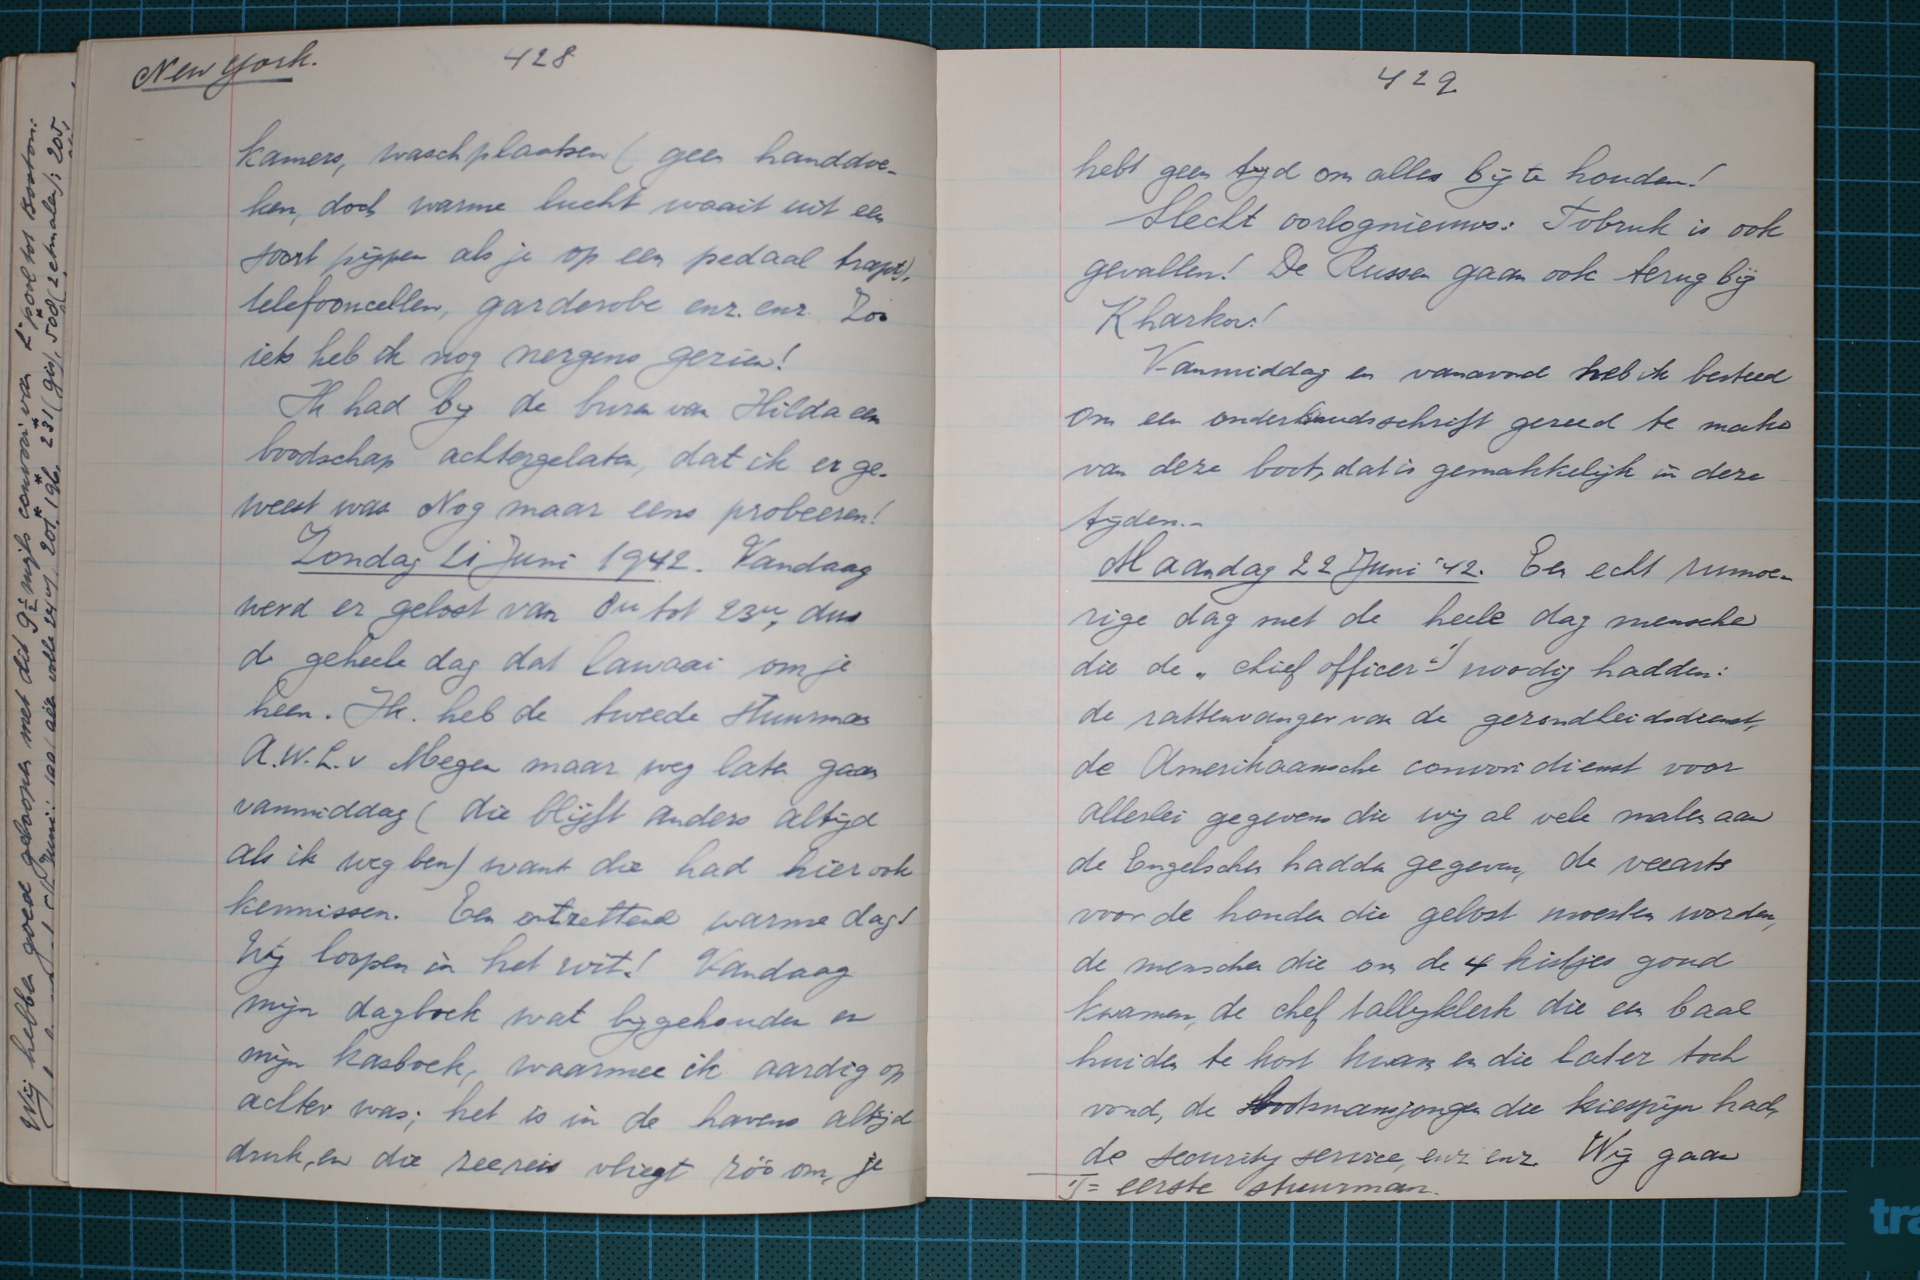 New York.
428
kamers, waschplaatsen (geen handdoe-
ken, doch warme lucht waait uit een
soort pijpen als je op een pedaal trapt),
telefooncellen, garderobe enz. enz. Zoo
iets heb ik nog nergens gezien!
Ik had bij de buren van Hilda een
boodschap achtergelaten, dat ik er ge-
weest was Nog maar eens probeeren!
Zondag 21 Juni 1942. Vandaag
werd er gelost van 8u tot 23u, dus
de geheele dag dat lawaai om je
heen. Ik heb de tweede stuurman
A.W.L. v Megen maar weg laten gaan
vanmiddag (die blijft anders altijd
als ik weg ben) want die had hier ook
kennissen. Een ontzettend warme dag!
Wij loopen in het wit! Vandaag
mijn dagboek wat bijgehouden en
mijn kasboek, waarmee ik aardig op
achter was; het is in de havens altijd
druk, en die zeereis vliegt zóó om, je
429
hebt geen tijd om alles bij te houden!
Slecht oorlognieuws: Tobruk is ook
gevallen! De Russen gaan ook terug bij
Kharkov!
Vanmiddag en vanavond heb ik besteed
om een onderhoudsschrift gereed te maken
van deze boot, dat is gemakkelijk in deze
tijden.-
Maandag 22 Juni '42. Een echt rumoe-
rige dag met de heele dag menschen
die de "chief officer" 1) noodig hadden:
de rattenvanger van de gezondheidsdienst,
de Amerikaansche convooidienst voor
allerlei gegevens die wij al vele malen aan
de Engelschen hadden gegeven, de veearts
voor de honden die gelost moesten worden,
de menschen die om de 4 kistjes goud
kwamen, de chef tallyklerk die een baal
huiden te kort kwam en die later toch
vond, de bootsmansjongen die kiespijn had,
de security service, enz enz. Wij gaan
1) = eerste stuurman.
Wij hebben goed geloopen met dit 9½ mijls convooi van L'pool tot Boston: